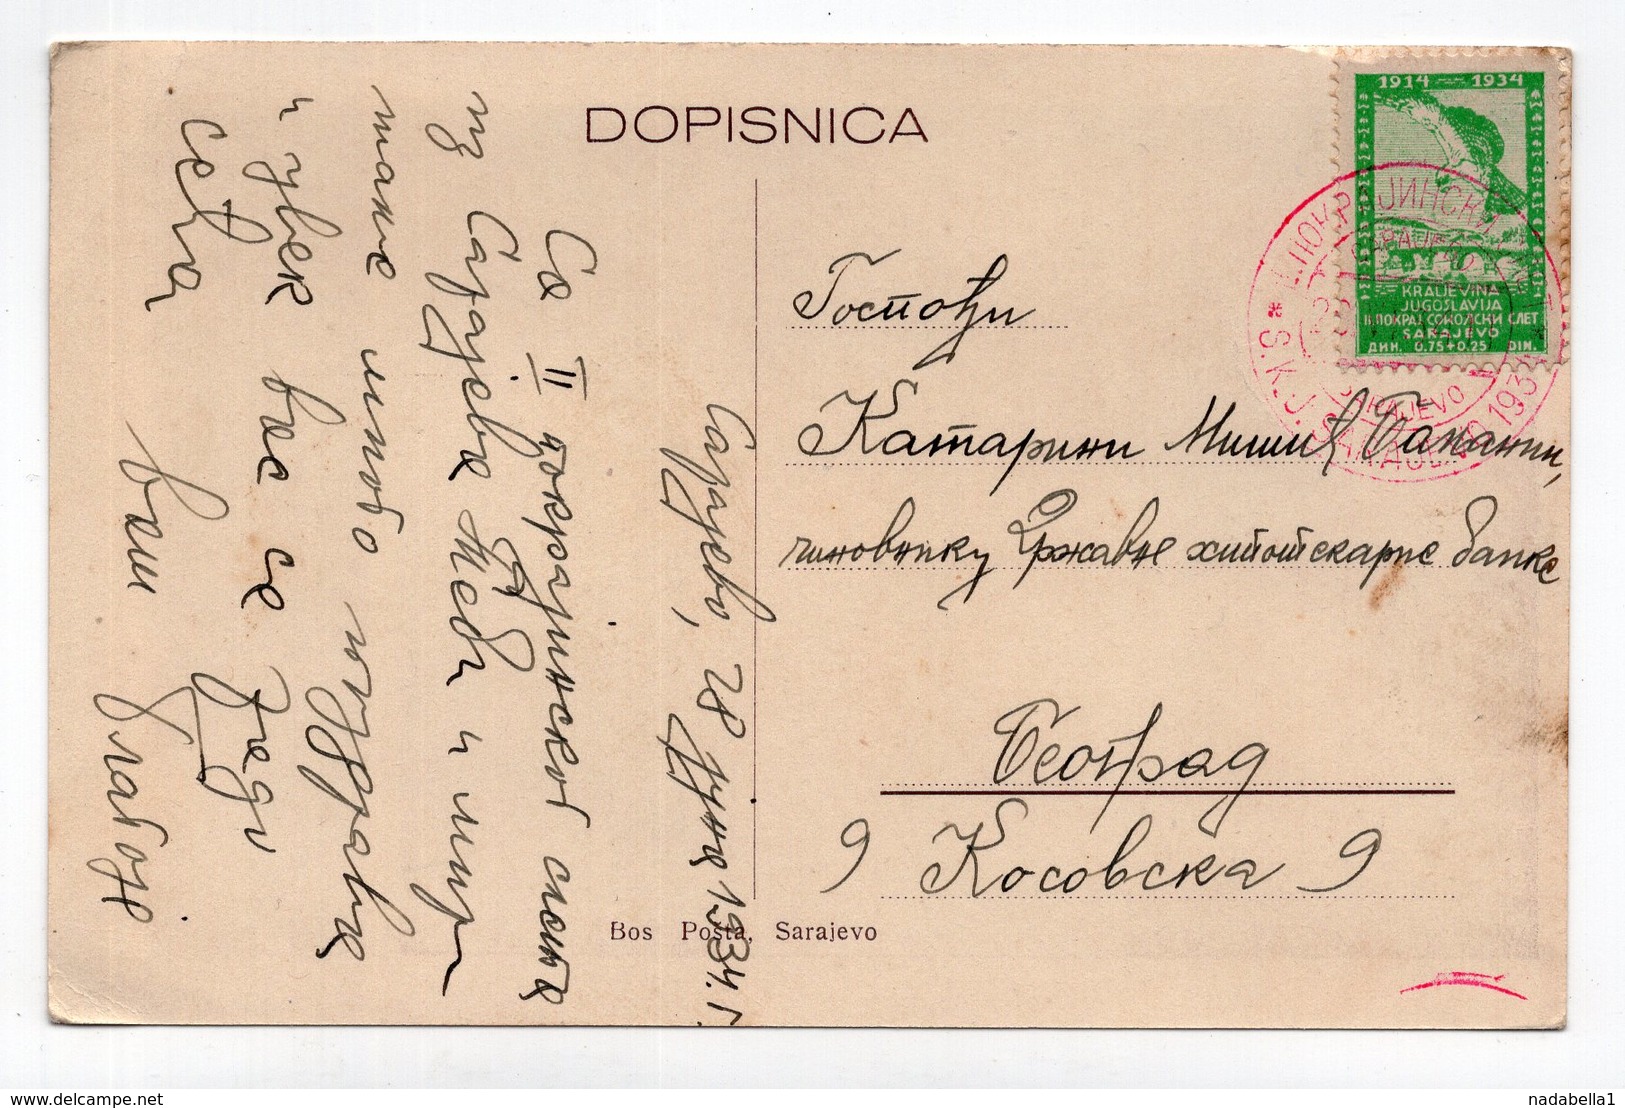 DOPISNICA
1914 — 1934
KRALJEVINA
JUGOSLAVIJA
II. ПОКРАЈ. СОКОЛСКИ СЛЕТ
SARAJEVO
ДИН. 0.75+0.25 DIN.
Сарајево, 28 јуна 1934. г.
Са II покрајинског слета
из Сарајева Теби и
много поздрава
и увек вас се
сећа
ваш
Госпођи
Катарини Мишић Бакани,
чиновнику Државне хипотекарне банке
Београд
9 Косовска 9
Bos Pošta, Sarajevo
nadabella1